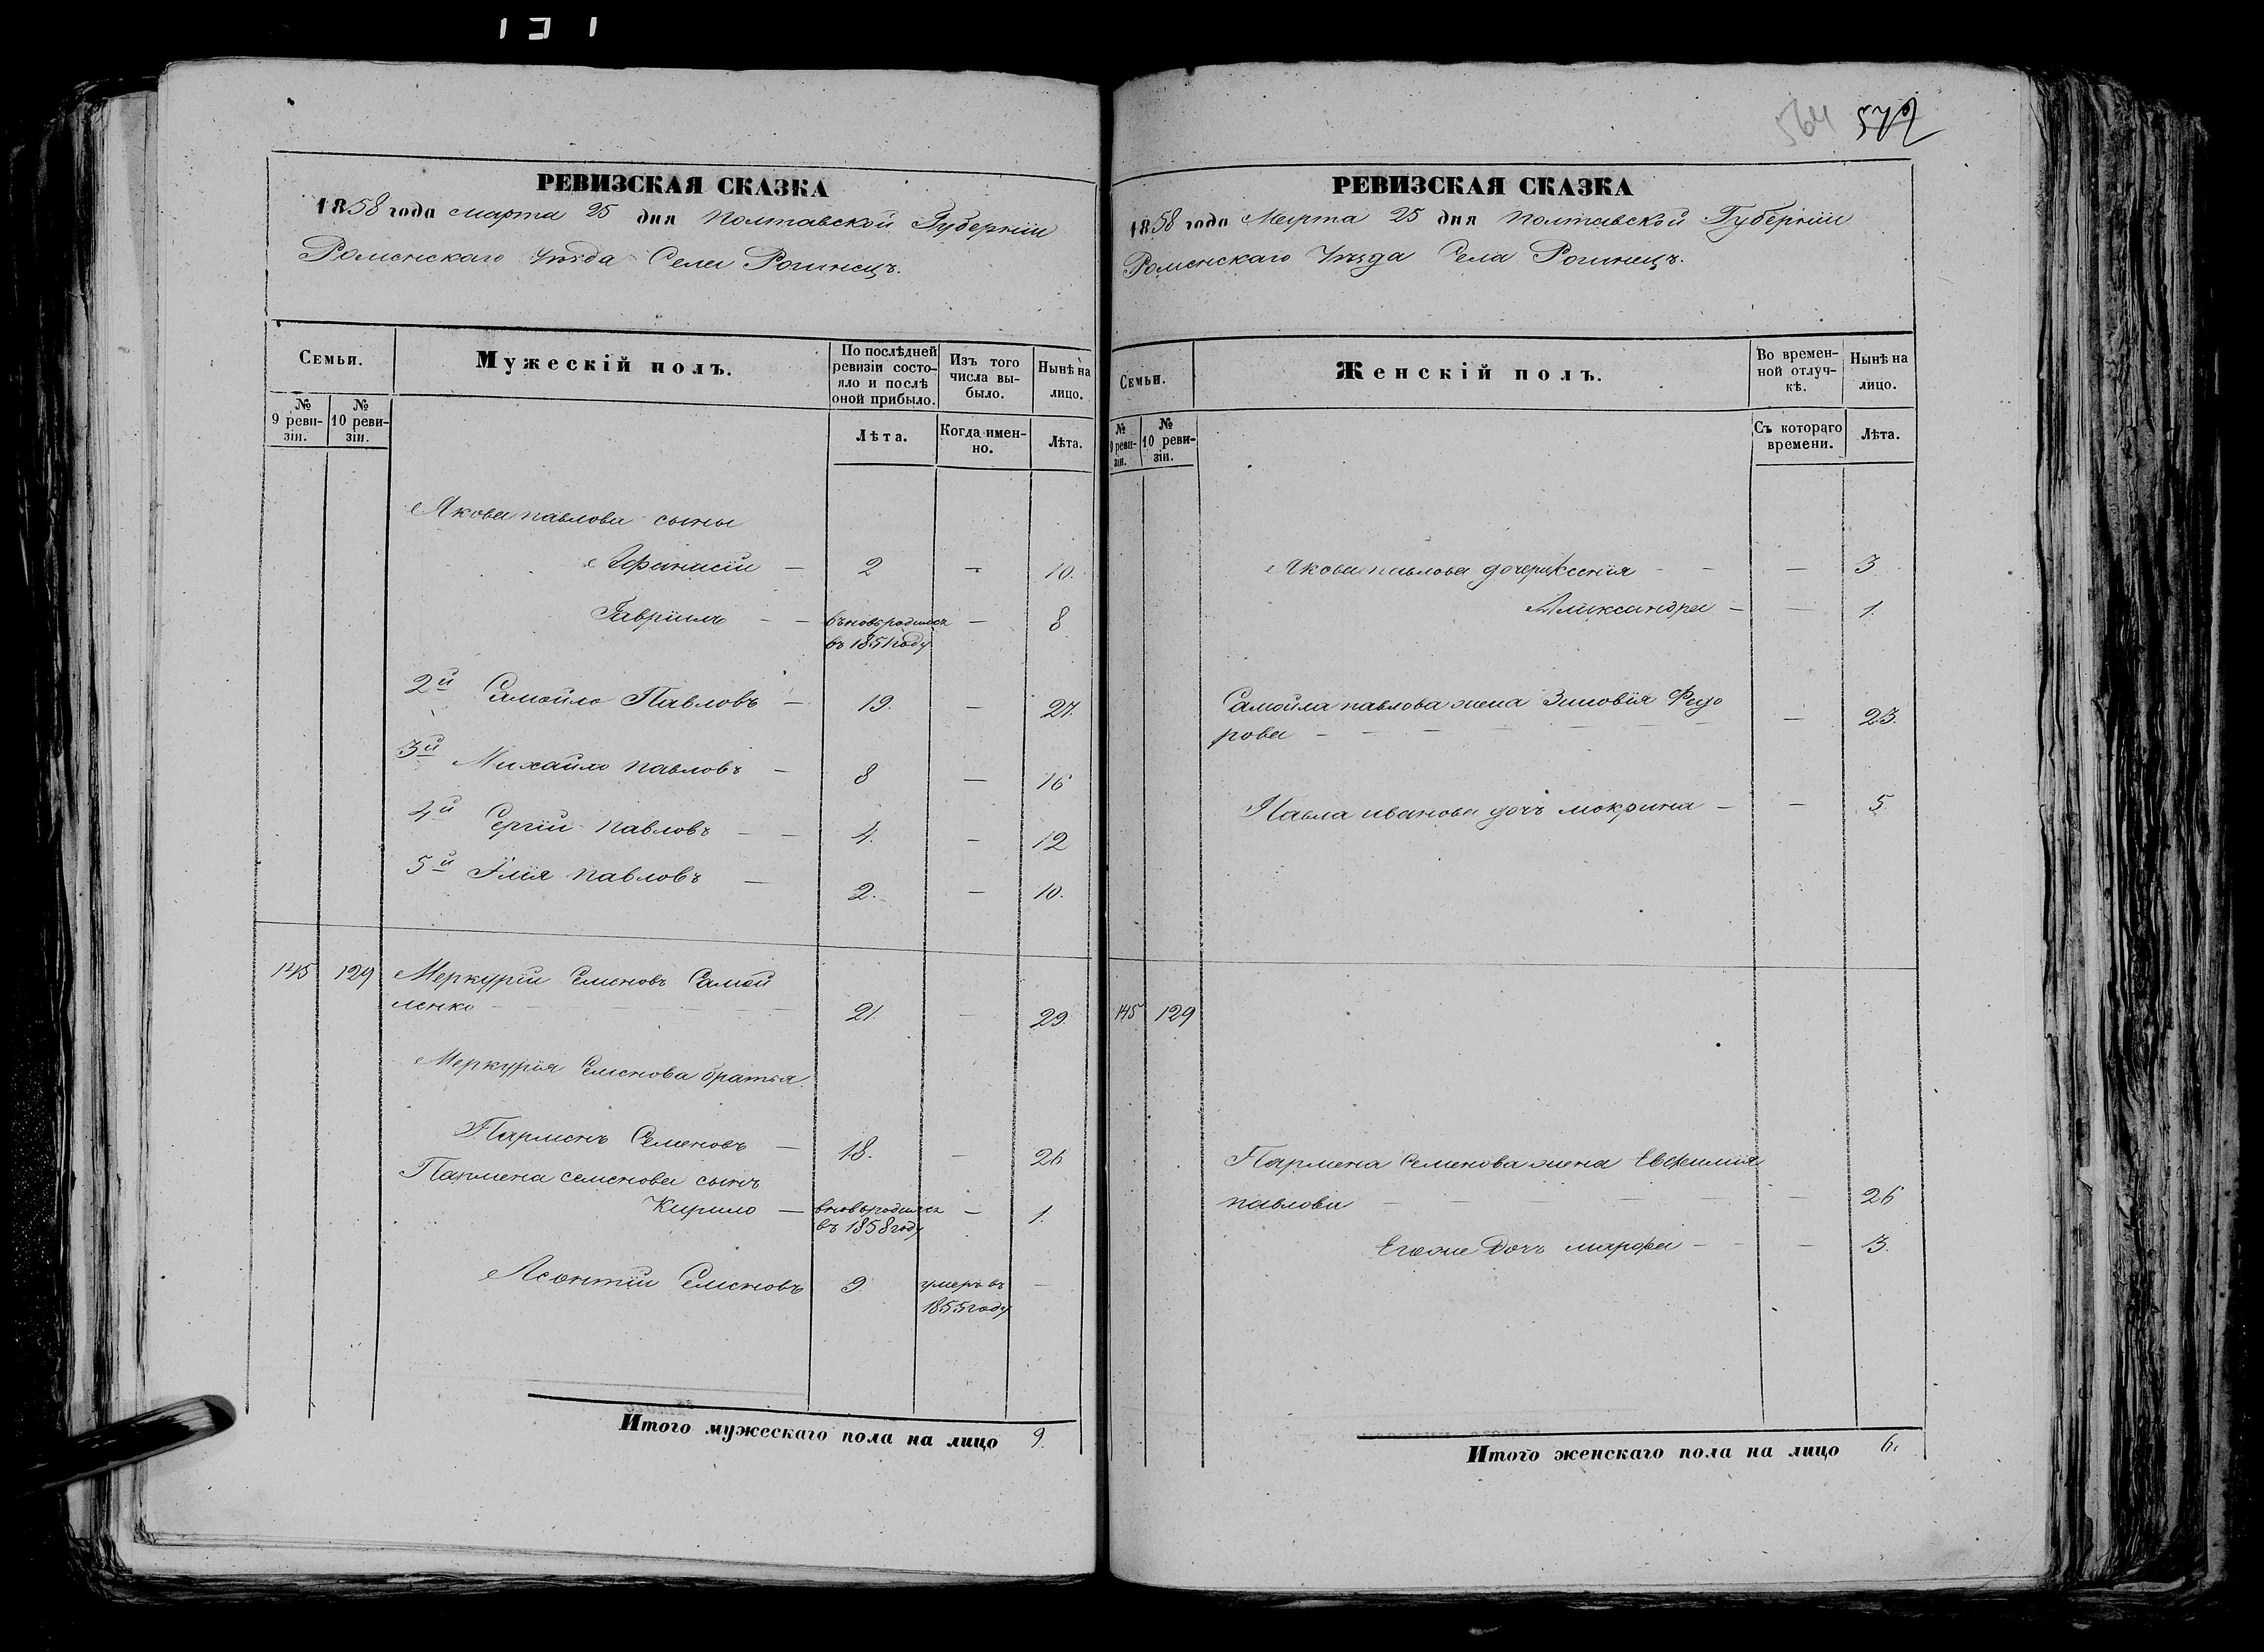 131
564 572
РЕВИЗСКАЯ СКАЗКА
1858 года марта 25 дня Полтавской Губерніи
Роменскаго Уѣзда Села Рогинецъ.
Семьи.
Мужескій полъ.
По послѣдней ревизіи состояло и послѣ оной прибыло.
Изъ того числа выбыло.
Нынѣ на лицо.
№ 9 ревизіи.
№ 10 ревизіи.
Лѣта.
Когда именно.
Лѣта.
Якова павлова сыны
Афанасій — 2 — 10.
Гавріилъ — — вьновьродился въ 1851 году — 8
2й Самойло Павловъ — 19. — 27.
3й Михайло павловъ — 8 — 16
4й Сергій павловъ — — 4. — 12
5й Ілія павловъ — 2. — 10.
145 129 Меркурій Семеновъ Самой
ленко — 21. — 29.
Меркурія Семенова братья.
Парменъ Семеновъ — 18. — 26
Пармена семенова сынъ
Кирило — вновьродился въ 1858 году — 1.
Леонтій Семеновъ 9. умеръ въ 1855 году —
Итого мужескаго пола на лицо 9.
РЕВИЗСКАЯ СКАЗКА
1858 года Марта 25 дня Полтавской Губерніи
Роменскаго Уѣзда Села Рогинецъ.
Семьи.
Женскій полъ.
Во временной отлучкѣ.
Нынѣ на лицо.
№ 9 ревизіи.
№ 10 ревизіи.
Съ котораго времени.
Лѣта.
Якова павлова дочери Ксенія — — — 3
Александра — — 1.
Самойла павлова жена Зиновія Федо
рова — — 23.
Павла иванова дочь мокрина — — 5.
145 129
Пармена Семенова жена Евфимия
павлова — — 26
Егоже Дочь марфа — — 3.
Итого женскаго пола на лицо 6.